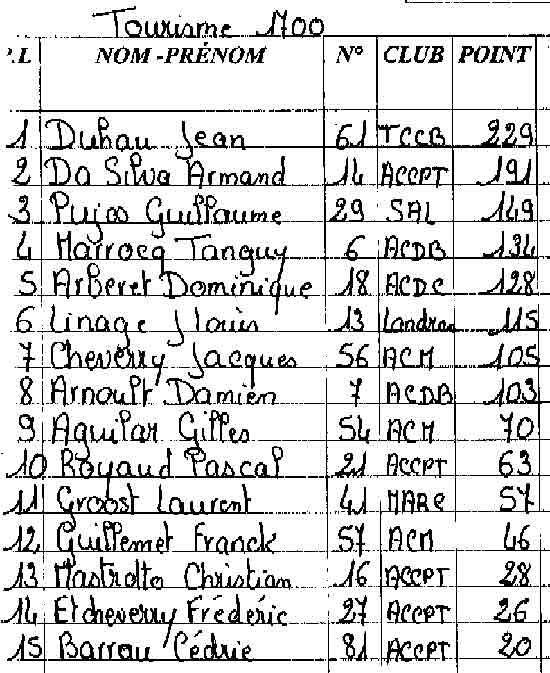 Tourisme 1700
P.L NOM -PRÉNOM N° CLUB POINT
1 Duhau Jean 61 TCCB 229
2 Da Silva Armand 14 ACCPT 191
3 Pujos Guillaume 29 SAL 149
4 Marrocq Tanguy 6 ACDB 134
5 Arberet Dominique 18 ACDC 128
6 Linage 13 115
7 Cheverry Jacques 56 ACM 105
8 Arnoult Damien 7 ACDB 103
9 Aguilar Gilles 54 ACM 70
10 Royaud Pascal 21 ACCPT 63
11 Groost Laurent 41 MARC 57
12 Guillemet Franck 57 ACM 46
13 Mastrolto Christian 16 ACCPT 28
14 Etcheverry Fréderic 27 ACCPT 26
15 Barrau Cédric 81 ACCPT 20